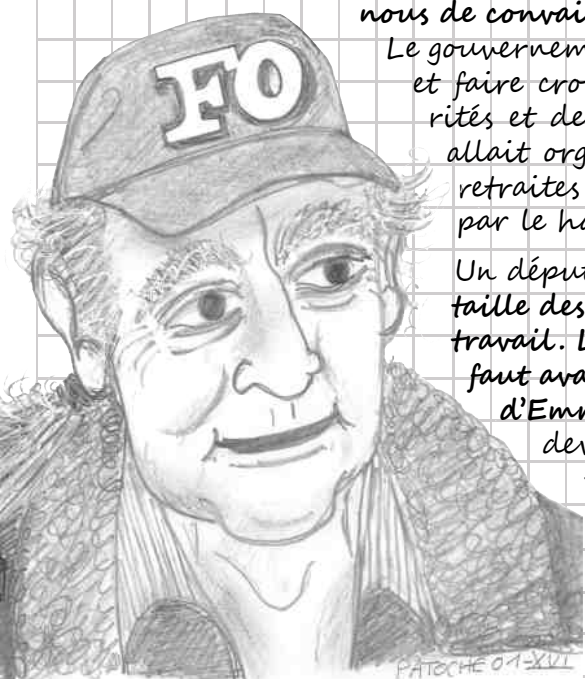 FO
nous de convai
Le gouvernem
et faire cro
rités et de
allait org
retraites
par le ha
Un déput
taille des
travail. L
faut ava
d'Emm
dev
PATOCHE 01-XVI